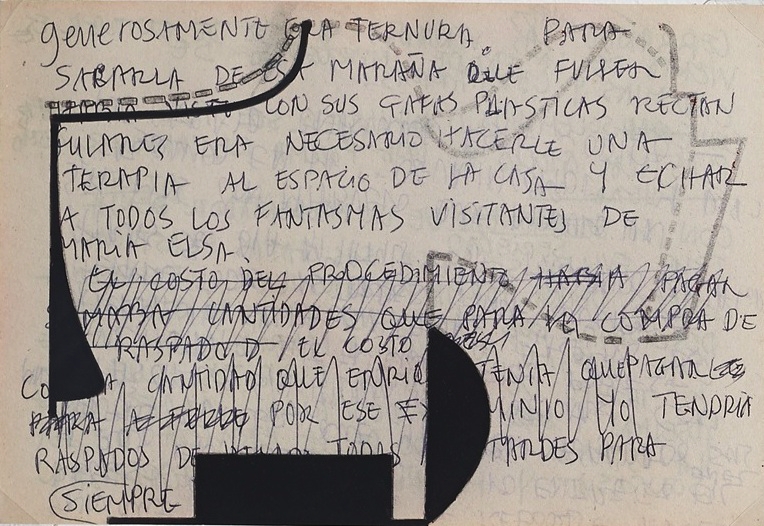 generosAMENTE ERA TERNURA. PARA
SACARLA DE ESA MARAÑA QUE FULPEA
CON SUS GAFAS PLASTICAS RECTAN
GULARES ERA NECESARIO HACERLE UNA
TERAPIA AL ESPACIO DE LA CASA Y ECHAR
A TODOS LOS FANTASMAS VISITANTES DE
MARÍA ELSA.
EL COSTO DEL PROCEDIMIENTO HABIA PAGAR
CANTIDADES QUE PARA LA COMPRA DE
RASPADO D EL COSTO
CANTIDAD QUE ENRIQ TENIA QUE PAGAR
PARA POR ESE MINIO YO TENDRIA
RASPADOS DE TODAS TARDES PARA
SIEMPRE